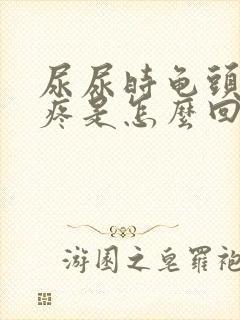 尿尿時龟頭
疼是怎麼回
游園之皂羅袍